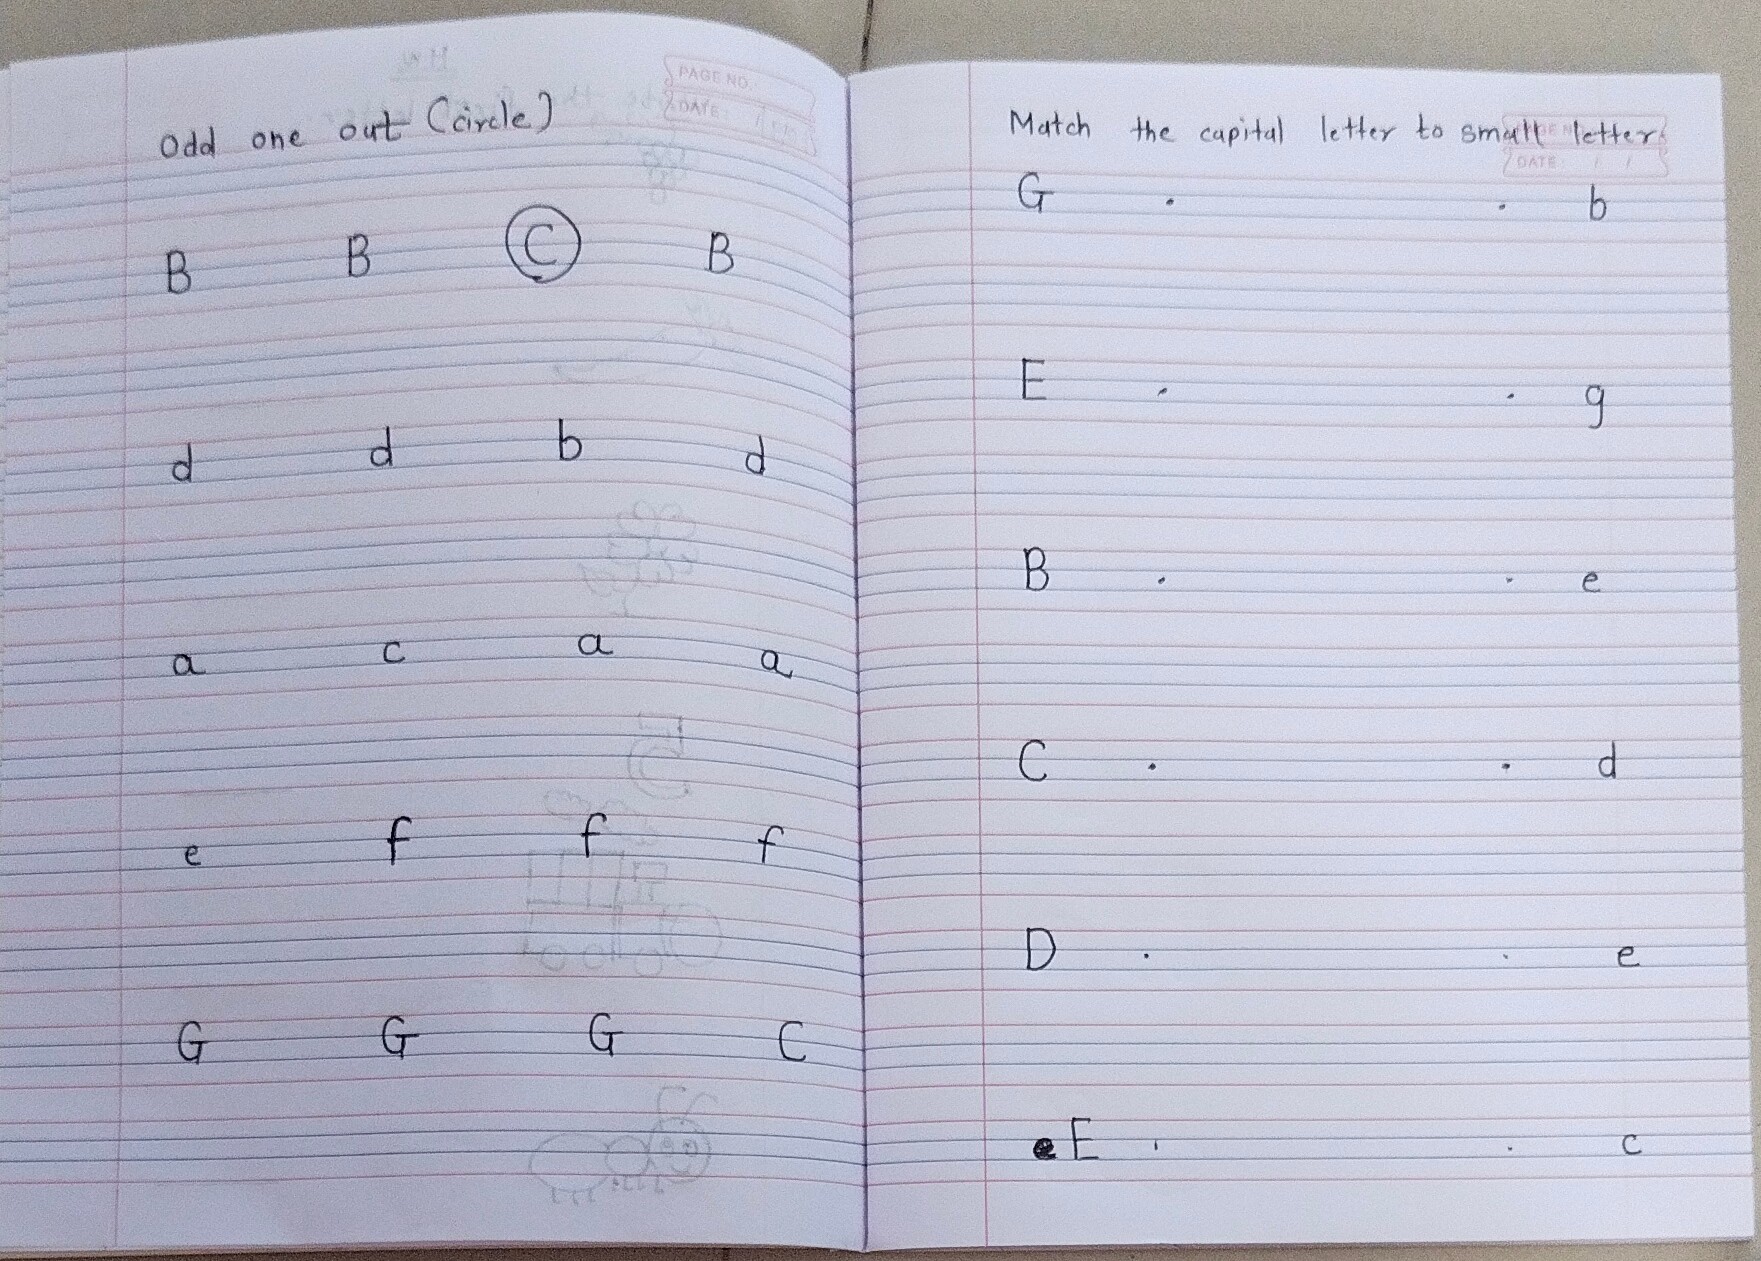 odd one out (circle)
B B C B
d d b d
a c a a
e f f f
G G G C
PAGE NO.
DATE:
Match the capital letter to small letter
DATE: / /
G . . b
E . . g
B . . e
C . . d
D . . e
e E . . c